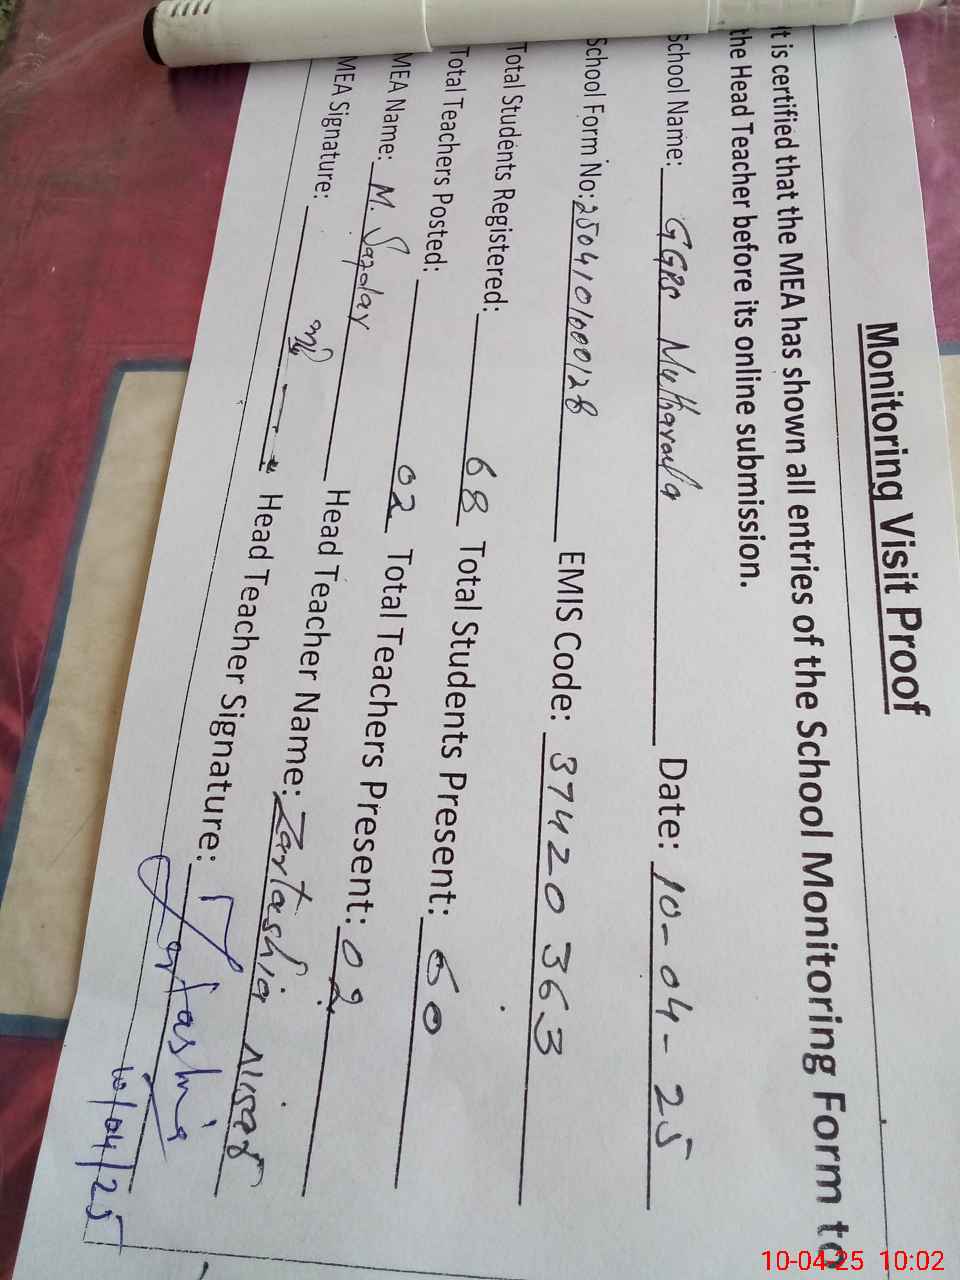 Monitoring Visit Proof
It is certified that the MEA has shown all entries of the School Monitoring Form to
the Head Teacher before its online submission.
School Name: GGPS Date: 10-04-25
School Form No: 2504101000128 EMIS Code: 37420363
Total Students Registered: 68 Total Students Present: 60
Total Teachers Posted: 02 Total Teachers Present: 02
MEA Name: M. Head Teacher Name: Zartashia Nisar
MEA Signature: Head Teacher Signature: Zartashia
10/04/25
10-04-25 10:02